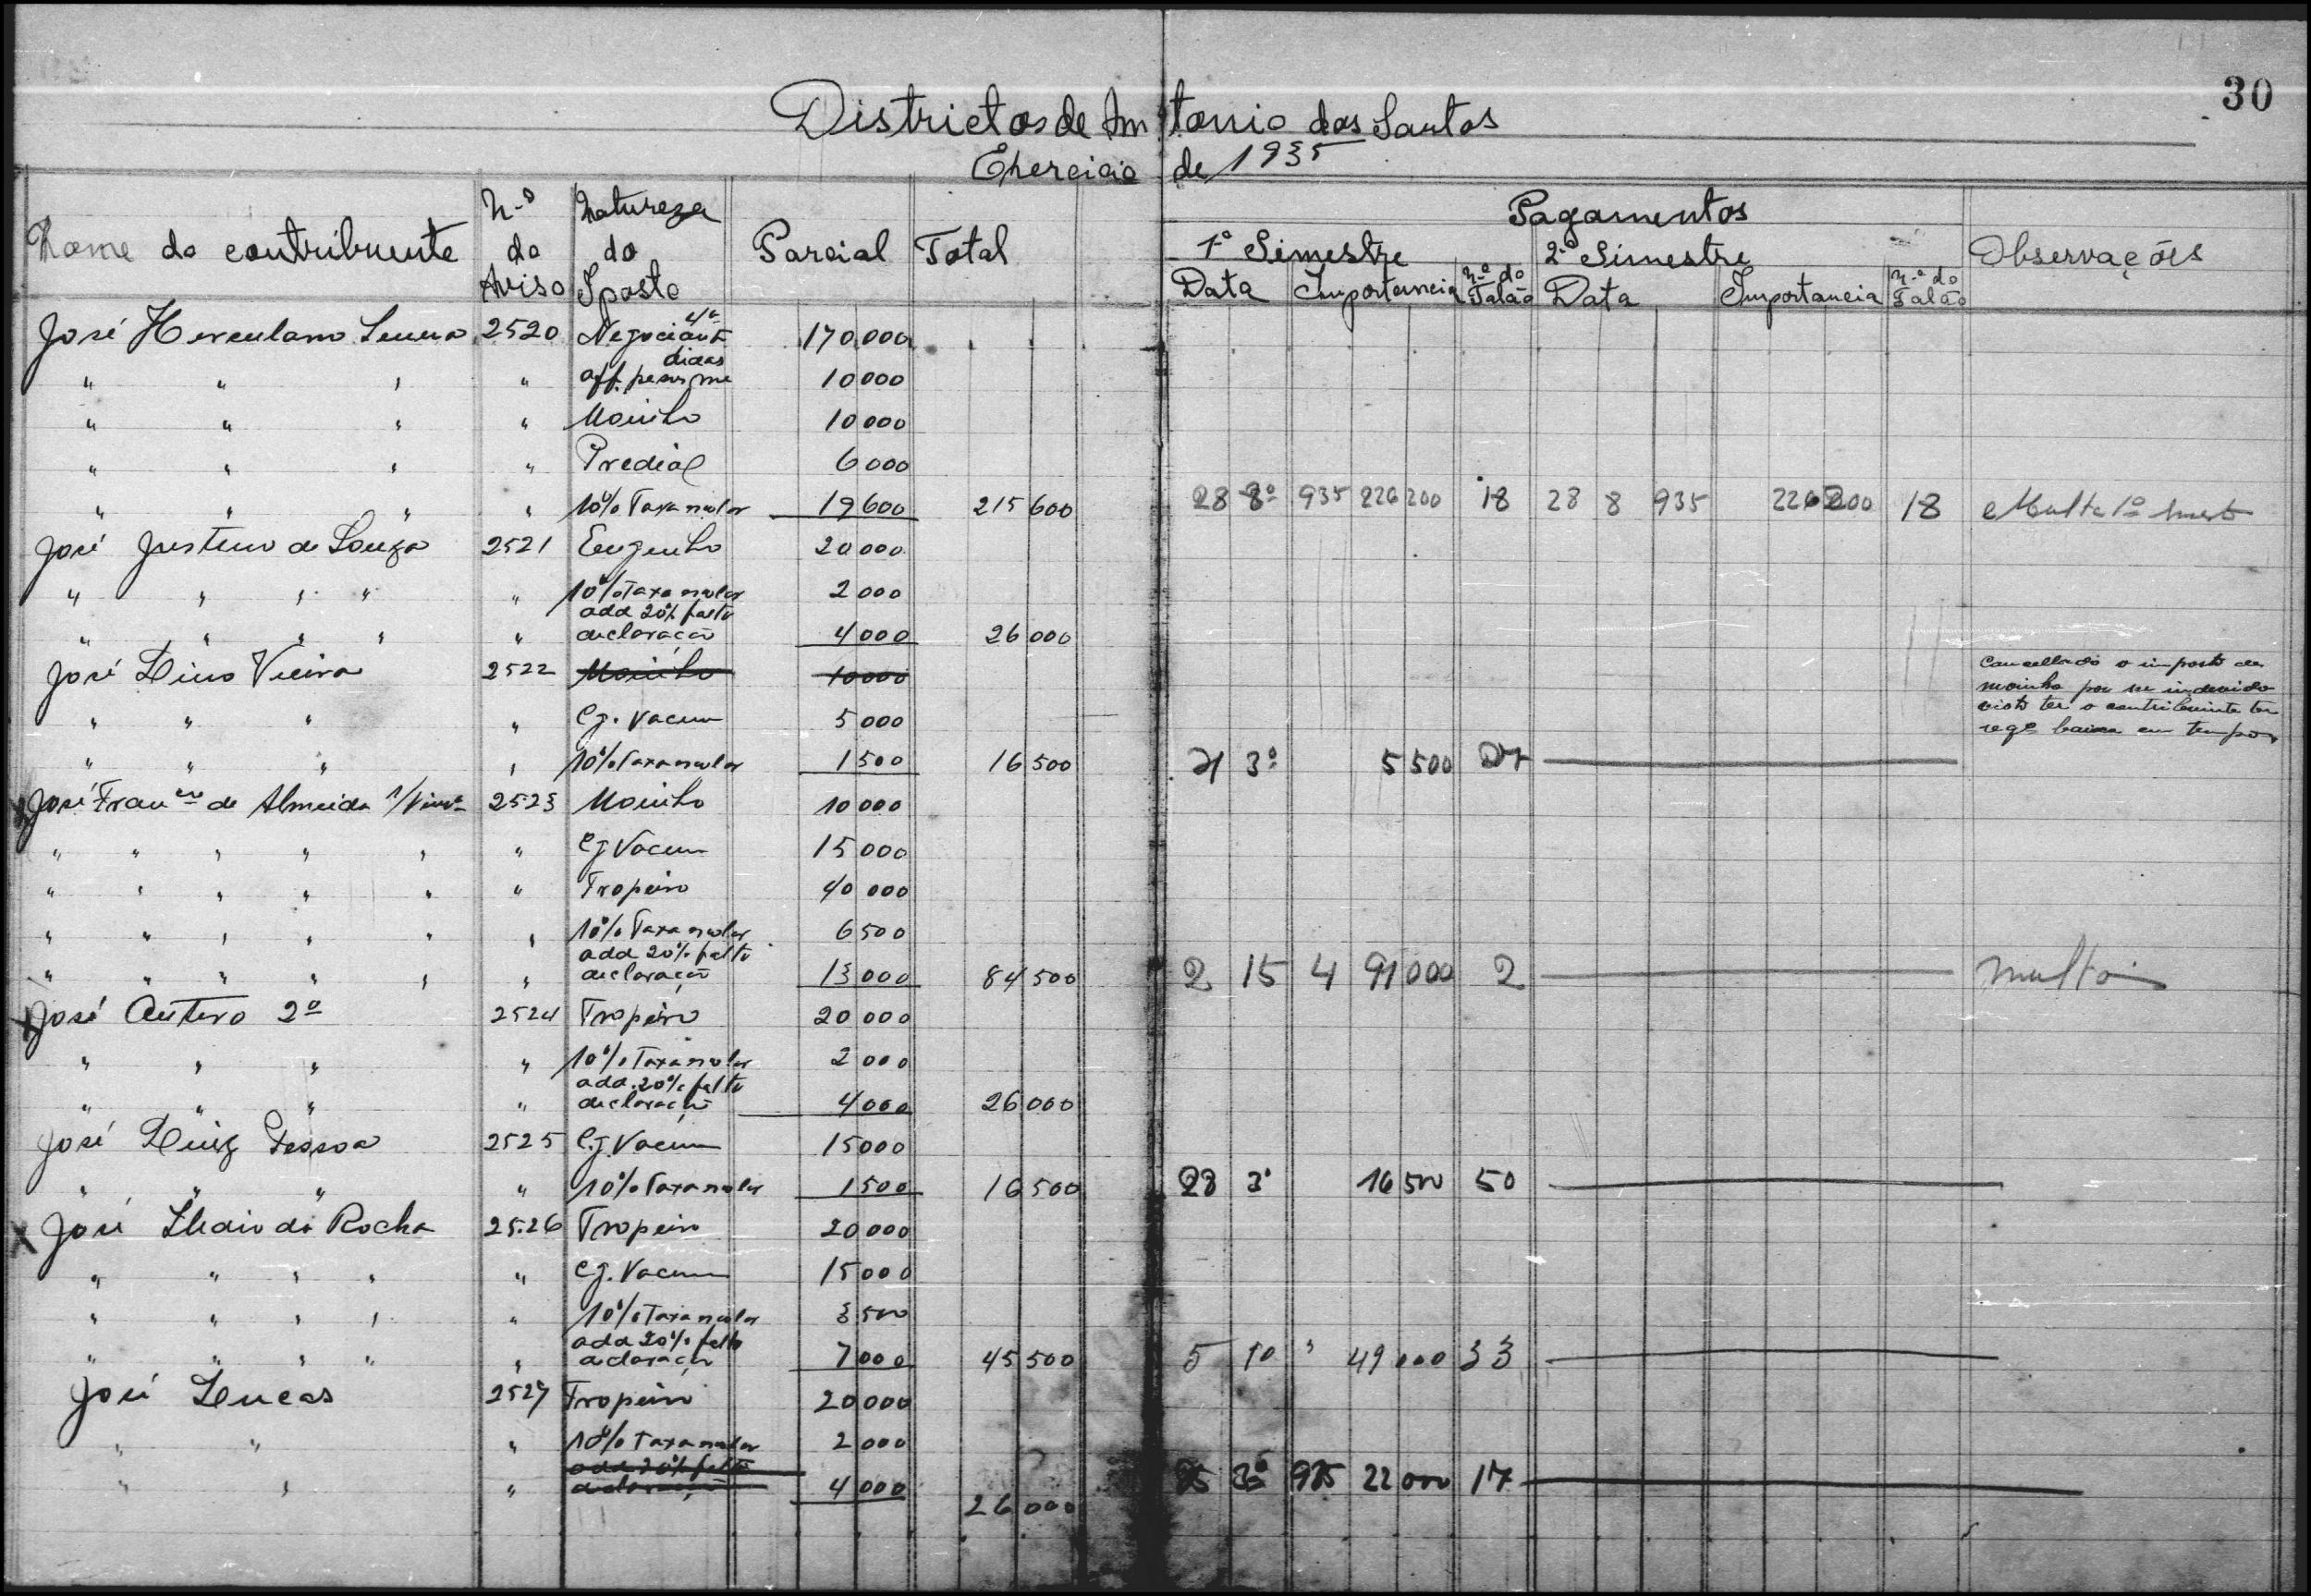 30
Districtos de Antonio dos Santos
Exercicio de 1935
Nome do contribuente N.º do Aviso Natureza do Iposto Parcial Total Pagamentos Observações
1º Simestre 2º Simestre
Data Importancia N.º do Talão Data Importancia N.º do Talão
José Herculano 2520 Negociante 4ª 170,000
" " " " aff. pesos me didas 10 000
" " " " Moinho 10 000
" " " " Predial 6 000
" " " " 10% Taxa 19 600 215 600 28 8º 935 226 200 18 28 8 935 226 200 18 Multa 1º
José Justino de Souza 2521 Engenho 20 000
" " " " " 10% Taxa 2 000
" " " " " add 20% falta declaração 4 000 26 000
José Lino Vieira 2522 Moinho 10 000 Cancellado o imposto de moinho por ser indevido visto ter o contribuinte baixa em tempo
" " " " Cj. Vacum 5 000
" " " " 10% Taxa 1 500 16 500 21 3º 5 500 27
José Franco de Almeida 2523 Moinho 10 000
" " " " " " Cj Vacum 15 000
" " " " " " Tropeiro 40 000
" " " " " " 10% Taxa 6 500
" " " " " " add 20% falta declaração 13 000 84 500 2 15 4 91 000 2 multa
José Antero 2º 2524 Tropeiro 20 000
" " " " 10% Taxa 2 000
" " " " add. 20% falta declaração 4 000 26 000
José Luiz Pessoa 2525 Cj. Vacum 15 000
" " " " 10% Taxa 1 500 16 500 23 3º 16 500 50
X José da Rocha 2526 Tropeiro 20 000
" " " " " Cj. Vacum 15 000
" " " " " 10% Taxa 3 500
" " " " " add 20% falta declaração 7 000 45 500 5 10 " 49 000 33
José Lucas 2527 Tropeiro 20 000
" " " 10% Taxa 2 000
" " " add 20% falta declaração 4 000 26 000 3º 935 22 000 17